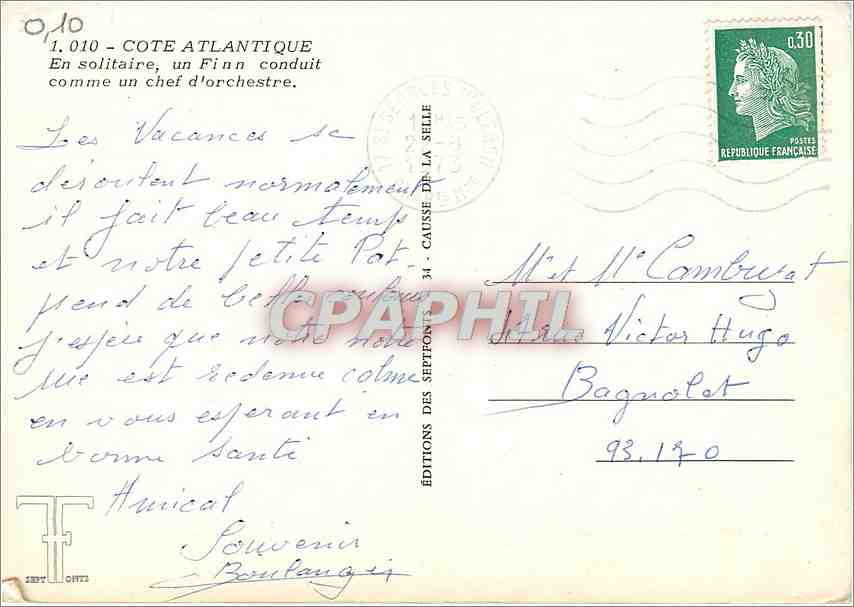 0,10
1. 010 - COTE ATLANTIQUE
En solitaire, un Finn conduit
comme un chef d'orchestre.
Les Vacances se
déroulent normalement
il fait beau temp
et notre petite Pat-
prend de belle couleur
J'espère que votre
rue est redevenue calme
en vous esperant en
bonne Santé
Amical
Souvenir
Boulanger
SEPT FONTS
ÉDITIONS DES SEPTFONTS 34 - CAUSSE DE LA SELLE
CPAPHIL
0,30
POSTES
REPUBLIQUE FRANÇAISE
Mr et Me Camburat
rue Victor Hugo
Bagnolet
93.170